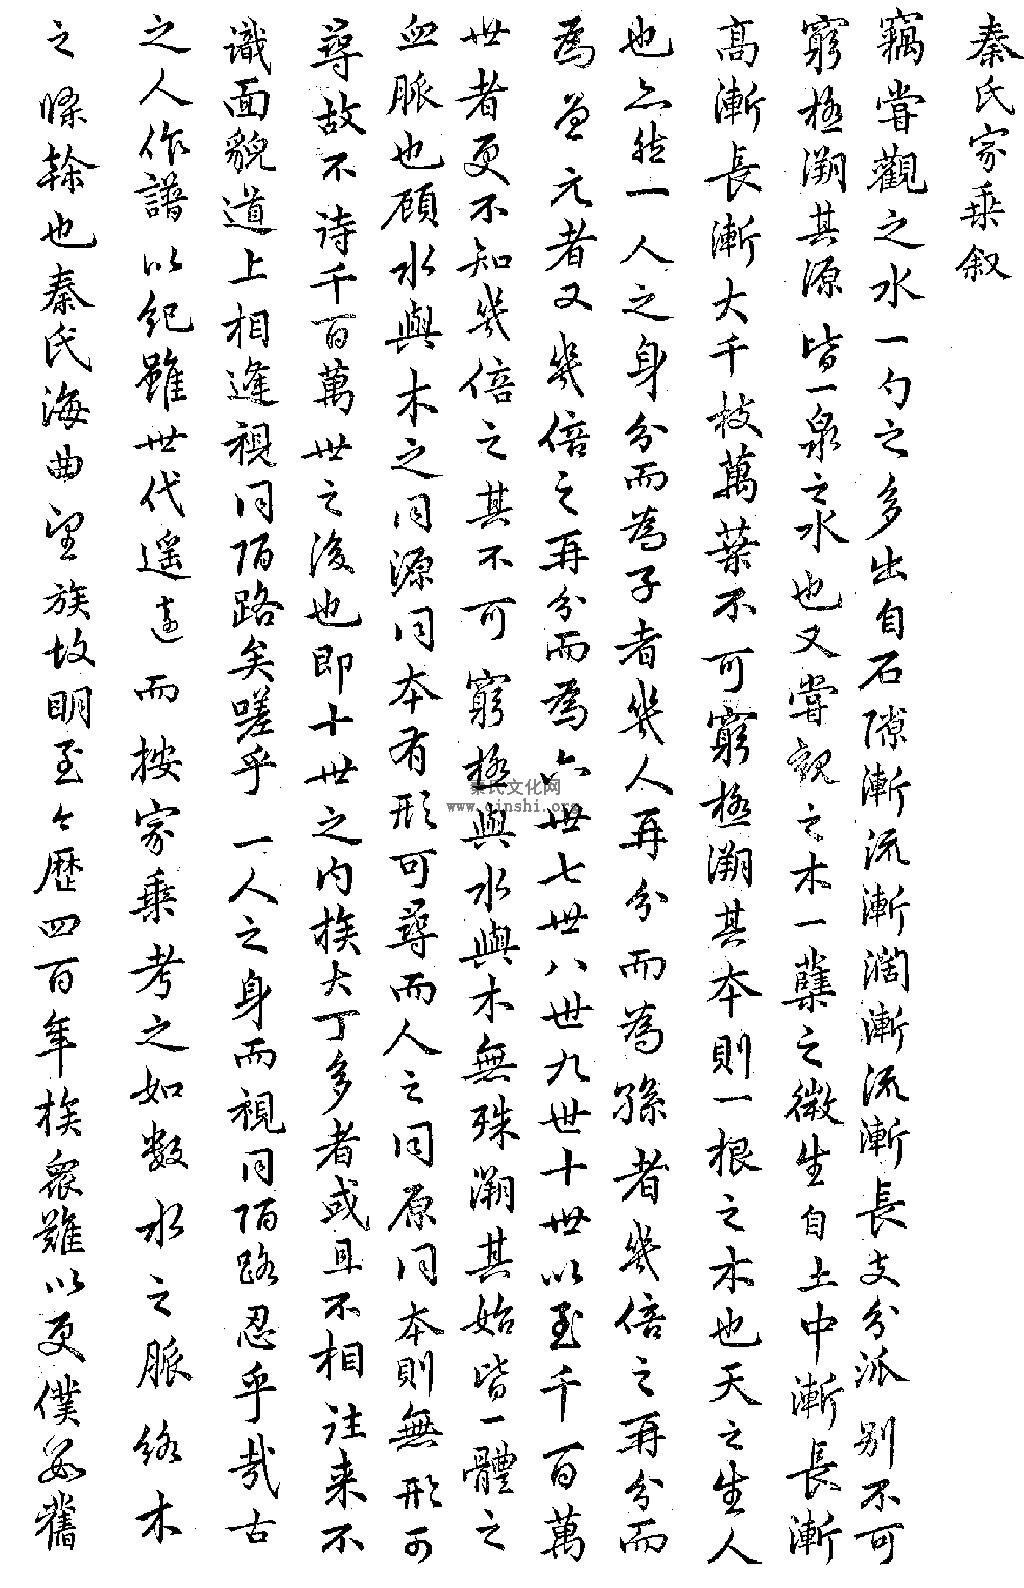 秦氏家乘叙
竊嘗觀之水一勺之多出自石隙漸流漸濶漸流漸長支分派别不可
窮極溯其源皆一泉之水也又嘗觀之木一蘖之微生自土中漸長漸
高漸長漸大千枝萬葉不可窮極溯其本則一根之木也天之生人
也亦然一人之身分而為子者幾人再分而為孫者幾倍之再分而
為曾元者又幾倍之再分而為六世七世八世九世十世以至千百萬
世者更不知幾倍之其不可窮極與水與木無殊溯其始皆一體之
血脈也顧水與木之同源同本有形可尋而人之同原同本則無形可
尋故不诗千百萬世之後也即十世之内族大丁多者或且不相往来不
識面貌道上相逢視同陌路矣嗟乎一人之身而視同陌路忍乎哉古
之人作譜以紀雖世代遥遠而按家乘考之如数水之脈络木
之條榦也秦氏海曲望族故明至今歷四百年族衆難以更僕数舊
秦氏文化网
www.qinshi.org